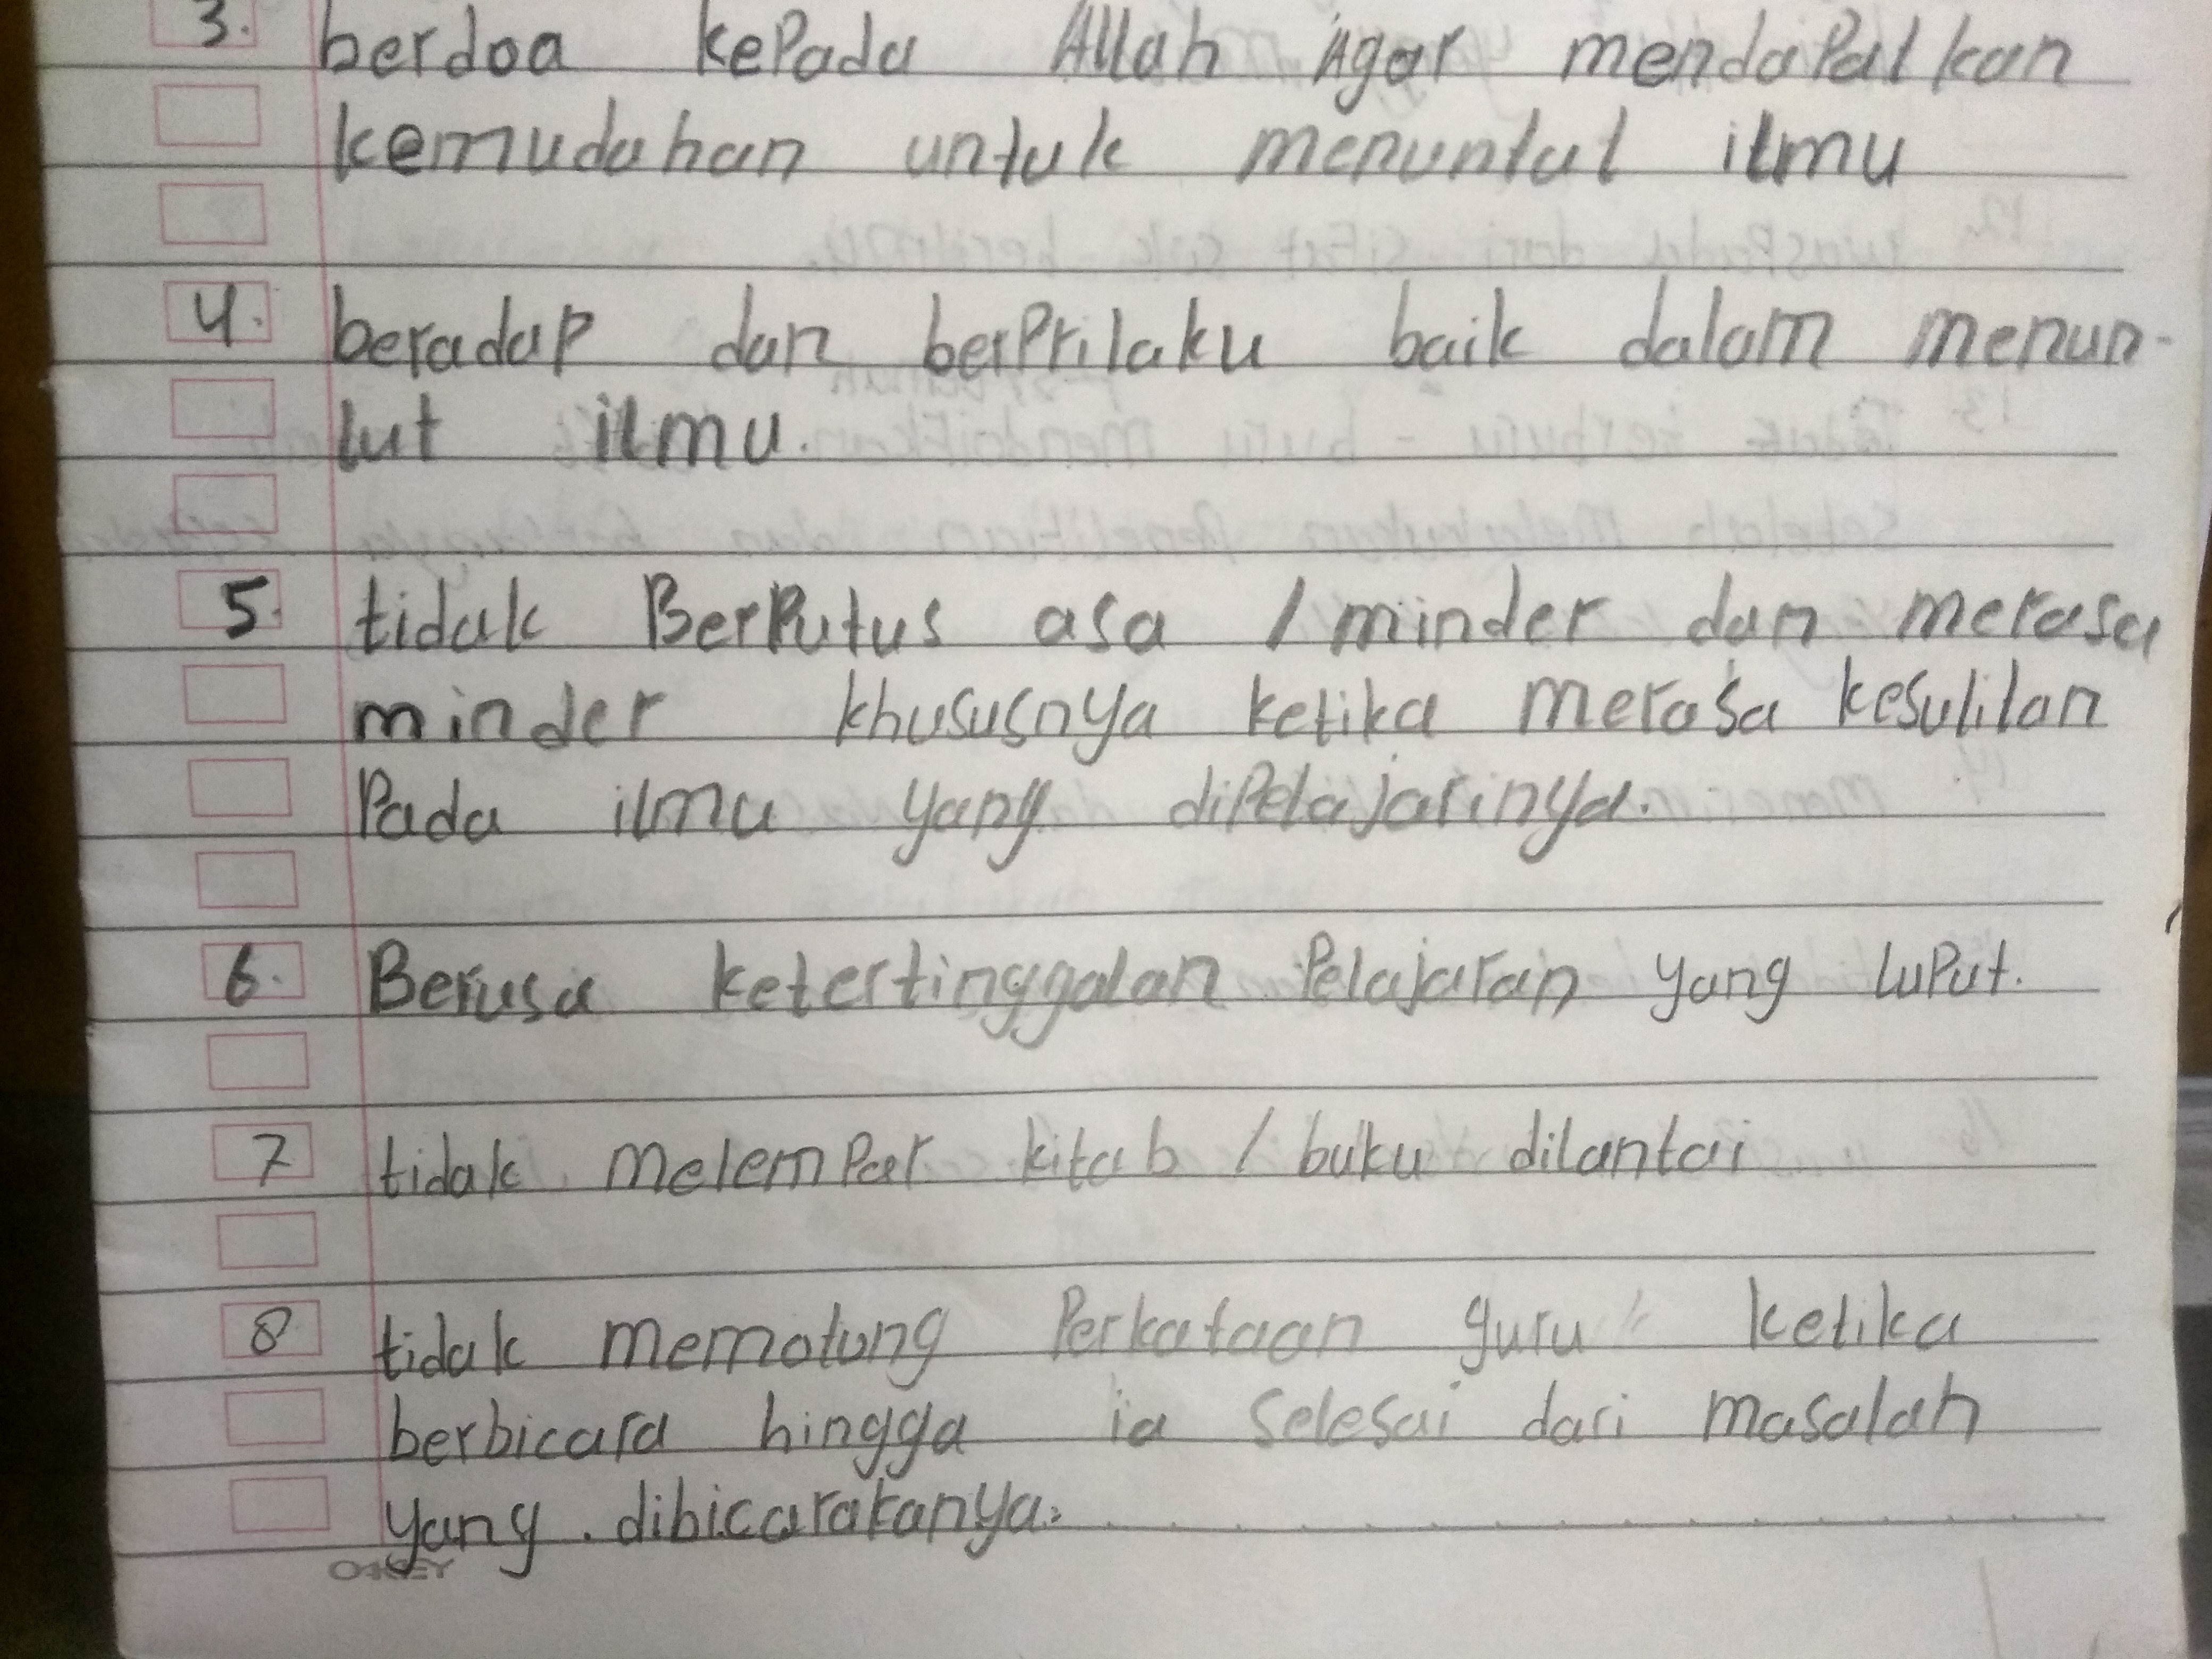 3. berdoa kepada Allah Agar mendapatkan
kemudahan untuk menuntut ilmu
4. beradap dan berprilaku baik dalam menun-
tut ilmu.
5. tidak Berputus asa / minder dan merasa
minder khususnya ketika merasa kesulitan
Pada ilmu yang dipelajarinya.
6. Berusa ketertinggalan Pelajaran yang luput.
7 tidak melempar kitab / buku dilantai
8 tidak memotong Perkataan guru ketika
berbicara hingga ia selesai dari masalah
yang . dibicarakanya.
OKEY